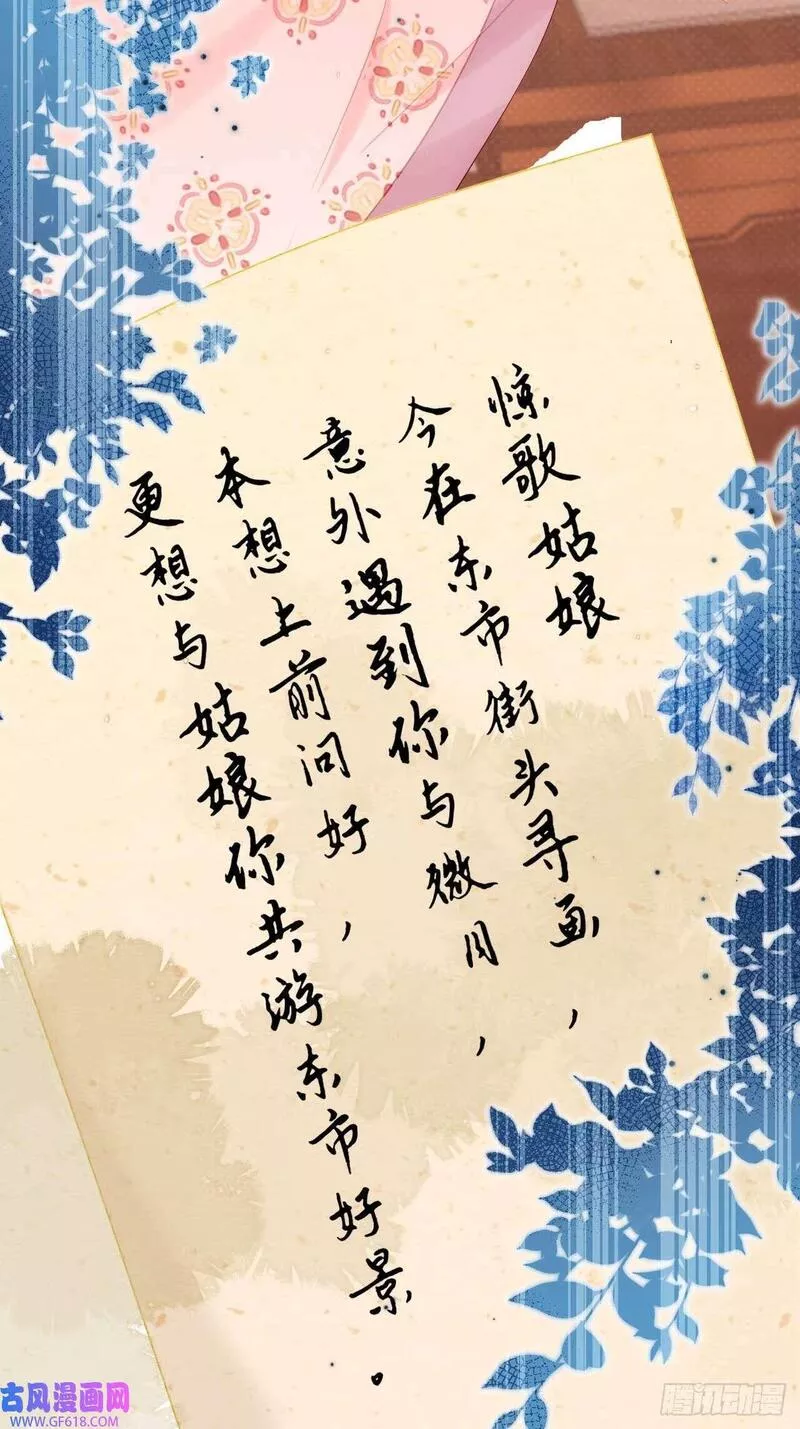 惊歌姑娘
今在东市街头寻画，
意外遇到你与微月，
本想上前问好，
更想与姑娘你共游东市好景。
古风漫画网
WWW.GF618.COM
腾讯动漫